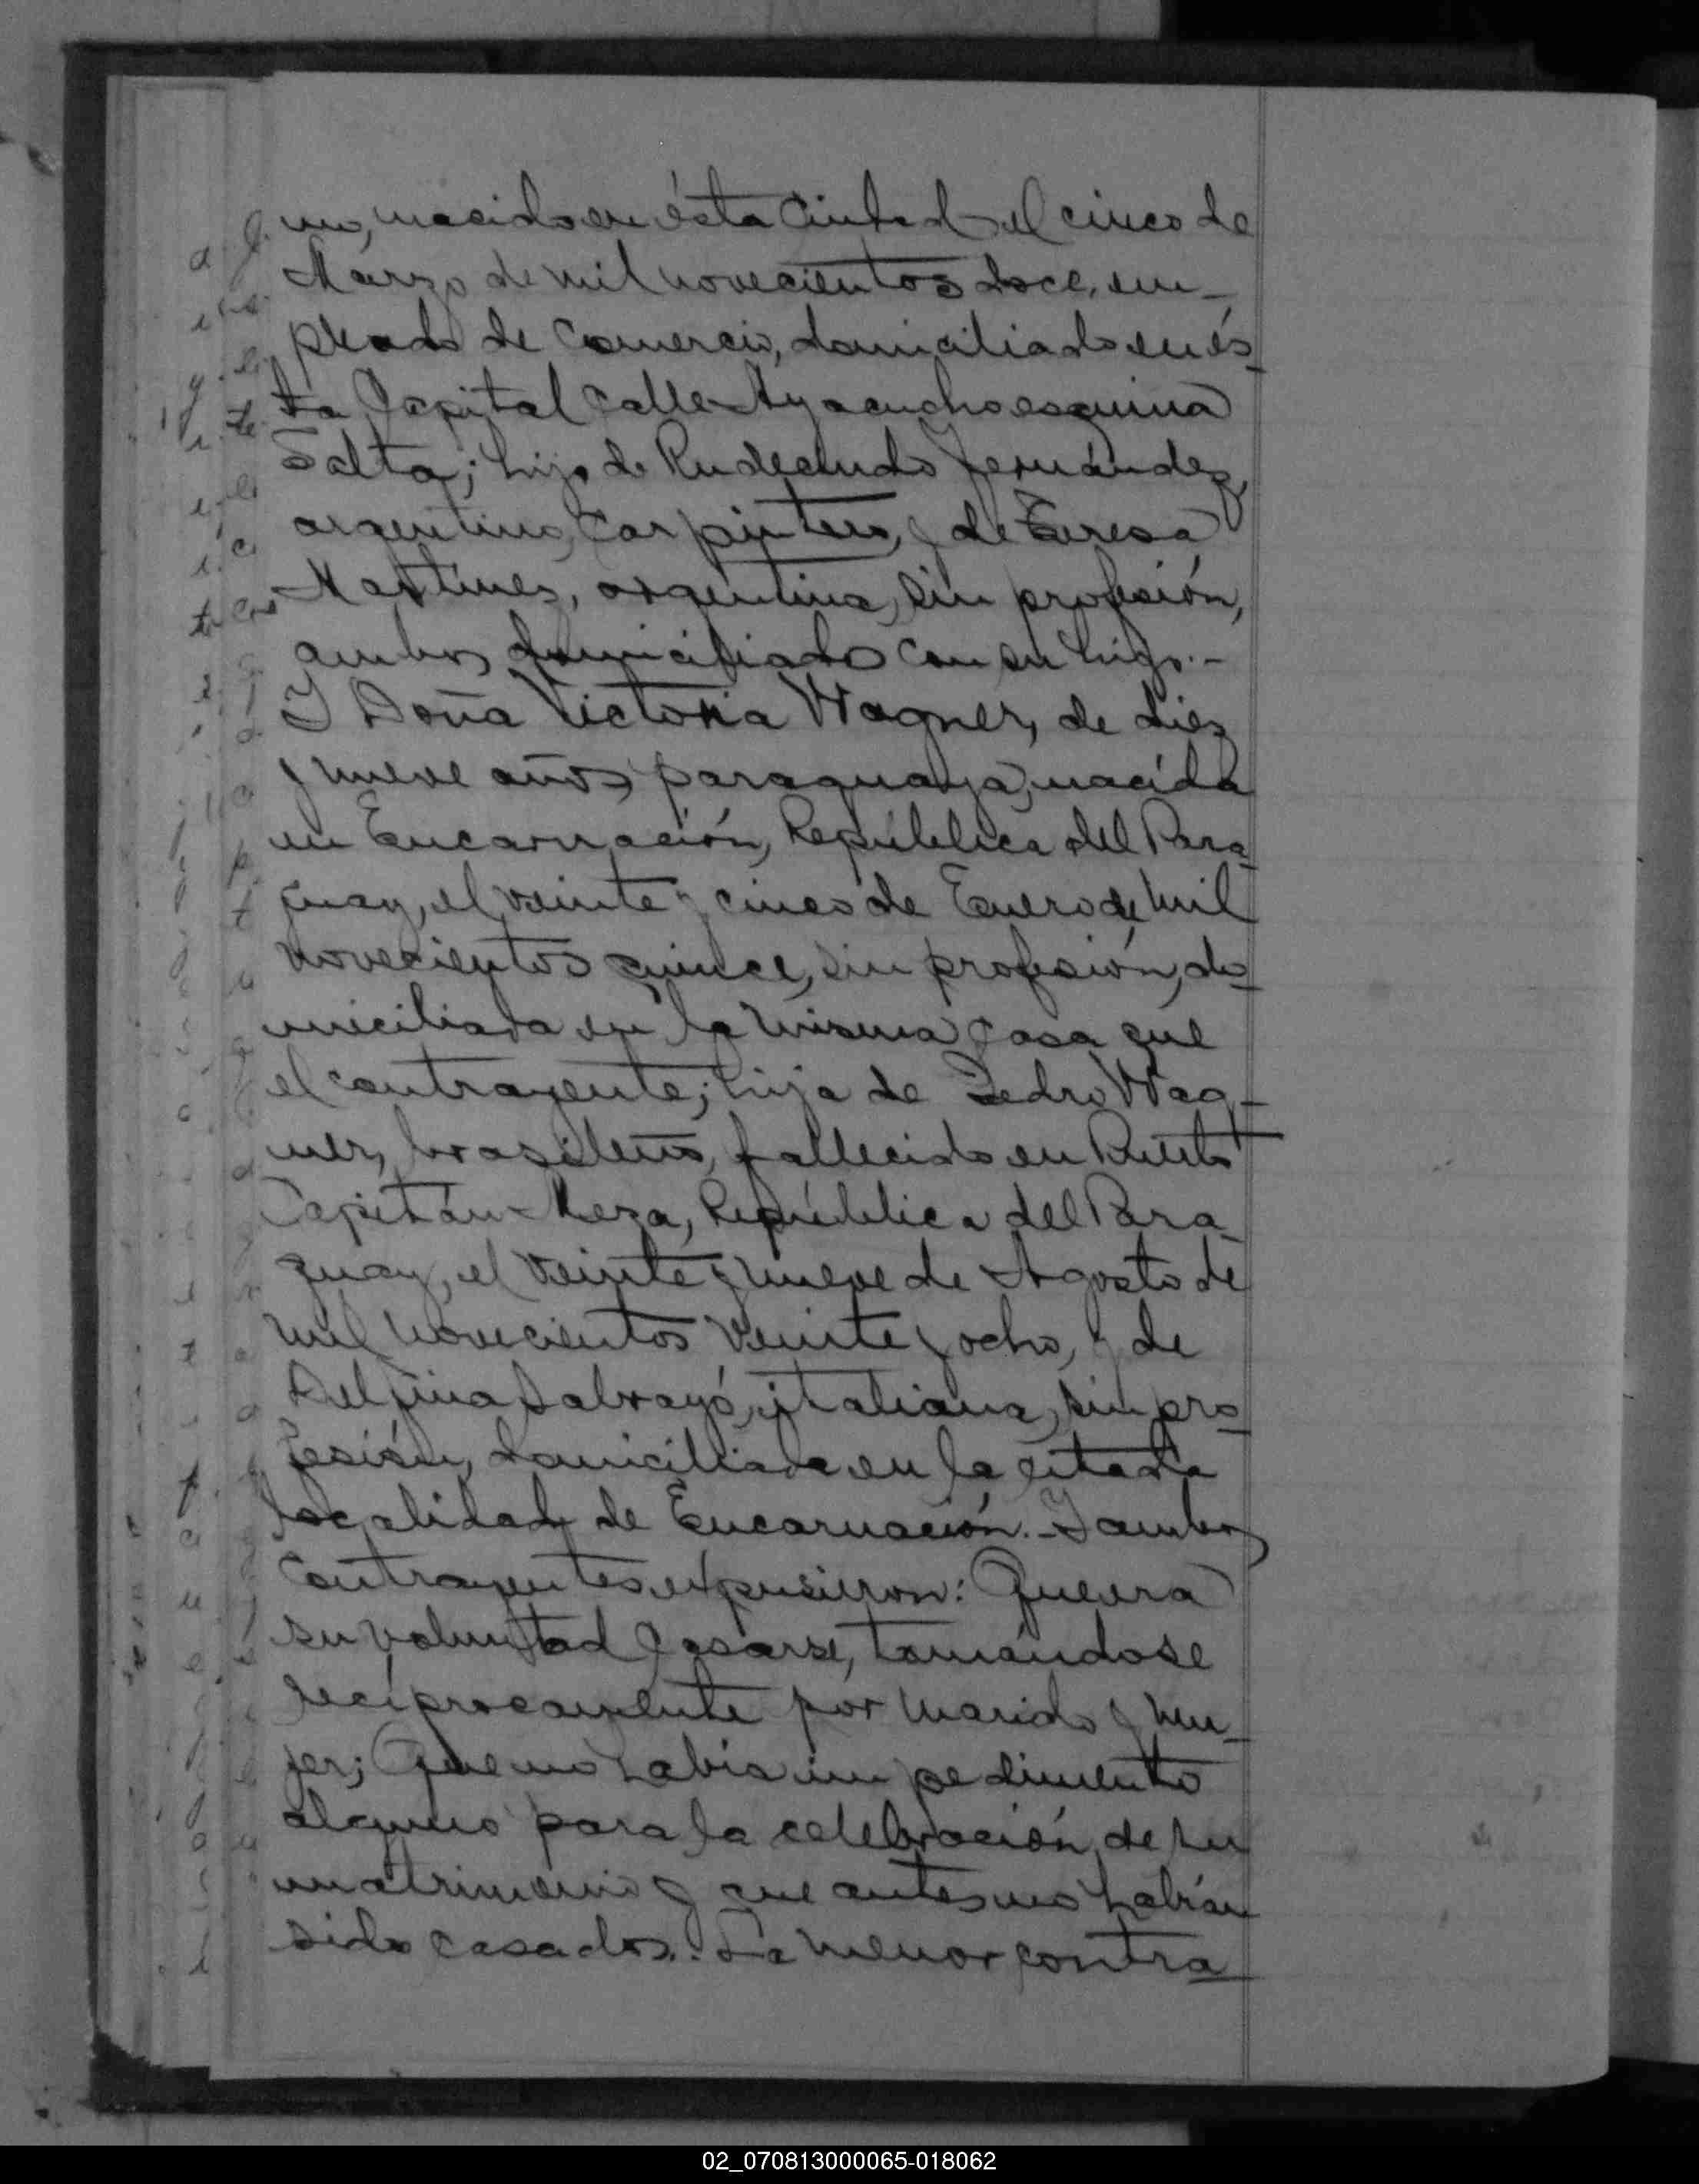 no, nacido en ésta Ciudad el cinco de
Marzo de mil novecientos doce, em-
pleado de Comercio, domiciliado en és-
ta Capital calle Ayacucho esquina
Salta; hijo de Rudecindo Fernández,
argentino, Carpintero, y de Teresa
Martínez, argentina, sin profesión,
ambos domiciliados con su hijo.-
Y Doña Victoria Wagner, de diez
y nueve años, paraguaya, nacida
en Encarnación, República del Para-
guay, el veinte y cinco de Enero de mil
novecientos quince, sin profesión, do-
miciliada en la misma casa que
el contrayente; hija de Pedro Wag-
ner, brasileño, fallecido en Puerto
Capitán Meza, República del Para-
guay, el veinte y nueve de Agosto de
mil novecientos veinte y ocho, y de
Delfina italiana, sin pro-
fesión, domiciliada en la citada
localidad de Encarnación.- Y ambos
Contrayentes expusieron: Que era
su voluntad Casarse, tomándose
recíprocamente por marido y mu-
jer; Que no había impedimento
alguno para la celebración de su
matrimonio y que antes no habían
sido casados.: La menor contra-
02_070813000065-018062